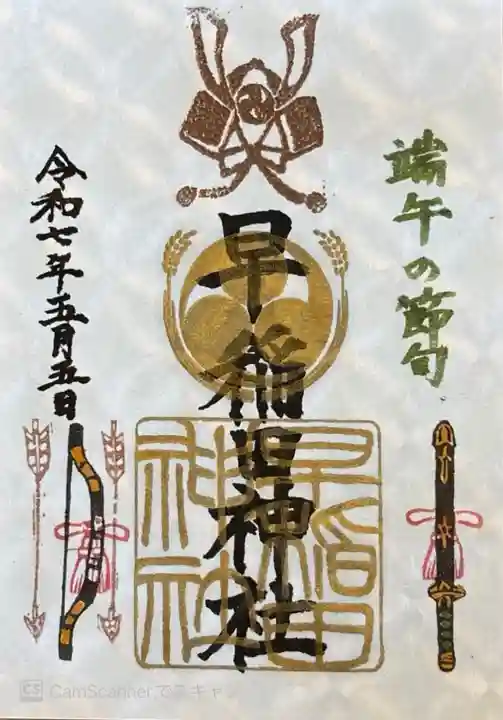 端午の節句
早稲田神社
早稲田
神社
令和七年五月五日
CS CamScannerでスキャン